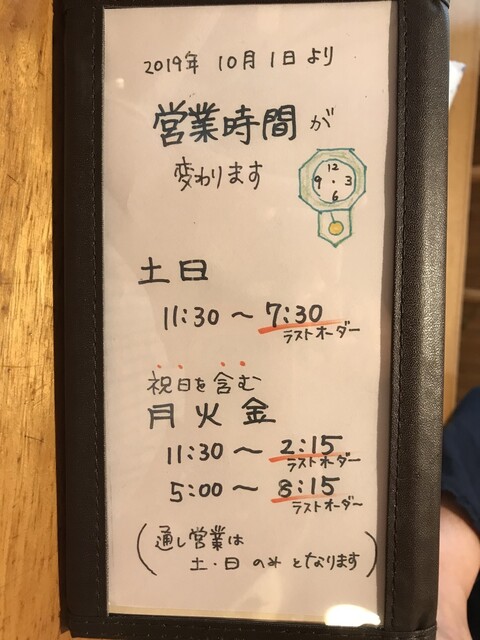 2019年 10月1日より
営業時間が
変わります
12
9 3
6
土日
11:30 〜 7:30
ラストオーダー
祝日を含む
月火金
11:30 〜 2:15
ラストオーダー
5:00 〜 8:15
ラストオーダー
(通し営業は
土・日 のみ となります)